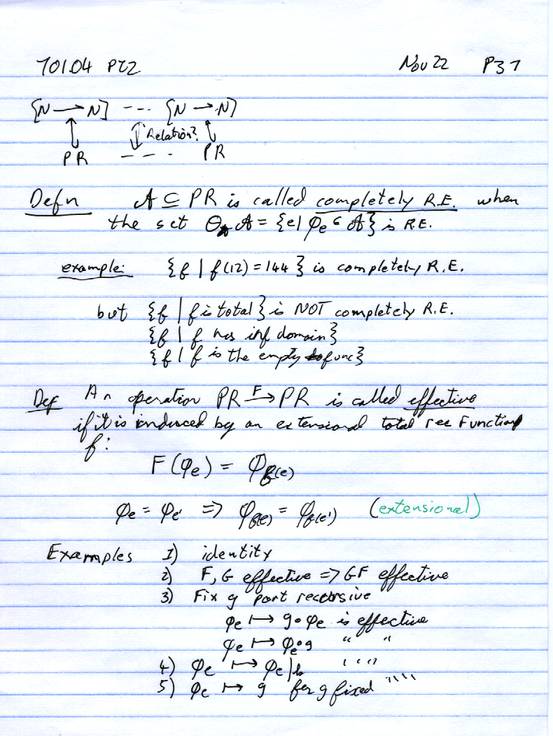 70104 PT2 Nov 22 P31
[N → N] --- [N → N]
Relation?
PR --- PR
Defn 𝒜 ⊆ PR is called completely R.E. when
the set Θ𝒜 = {e | φₑ ∈ 𝒜} is RE.
example: {f | f(12) = 144} is completely R.E.
but {f | f is total} is NOT completely R.E.
{f | f has inf domain}
{f | f is the empty func}
Def An operation PR F→ PR is called effective
if it is induced by an extensional total rec Function
f:
F(φₑ) = φ_f(e)
φₑ = φₑ' => φ_f(e) = φ_f(e') (extensional)
Examples 1) identity
2) F, G effective => GF effective
3) Fix g part recursive
φₑ ↦ g∘φₑ is effective
φₑ ↦ φₑ∘g " "
4) φₑ ↦ φₑ| " "
5) φₑ ↦ g for g fixed " "